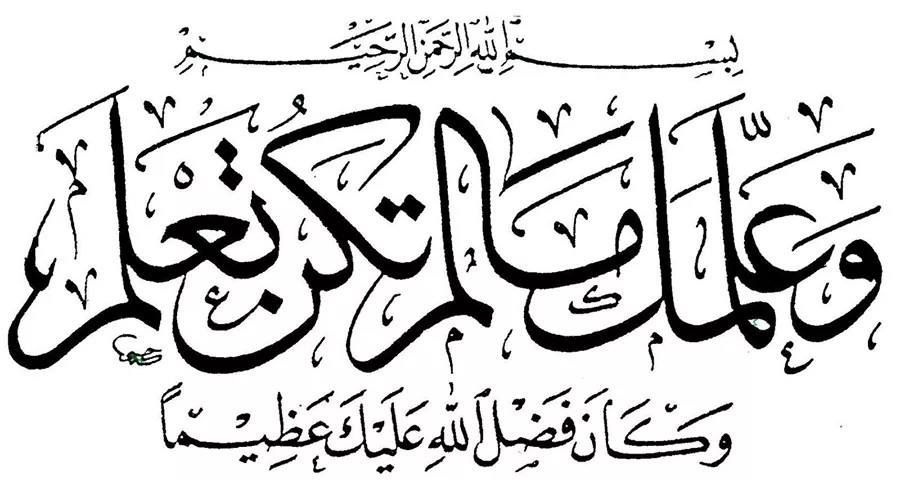 بِسْمِ اللهِ الرَّحْمٰنِ الرَّحِيْمِ
وَعَلَّمَكَ مَا لَمْ تَكُنْ تَعْلَمُ
وَكَانَ فَضْلُ اللهِ عَلَيْكَ عَظِيْمًا